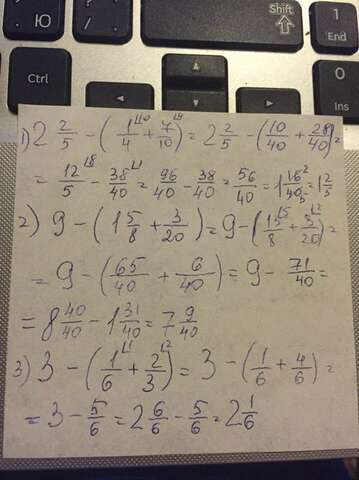 Ю
.
Shift
1
End
Ctrl
0
Ins
1) 2 2/5 - (1/4 + 7/10) = 2 2/5 - (10/40 + 28/40) =
= 12/5 - 38/40 = 96/40 - 38/40 = 56/40 = 1 16/40 = 1 2/5
2) 9 - (1 5/8 + 3/20) = 9 - (1 5/8 + 3/20) =
= 9 - (65/40 + 6/40) = 9 - 71/40 =
= 8 40/40 - 1 31/40 = 7 9/40
3) 3 - (1/6 + 2/3) = 3 - (1/6 + 4/6) =
= 3 - 5/6 = 2 6/6 - 5/6 = 2 1/6